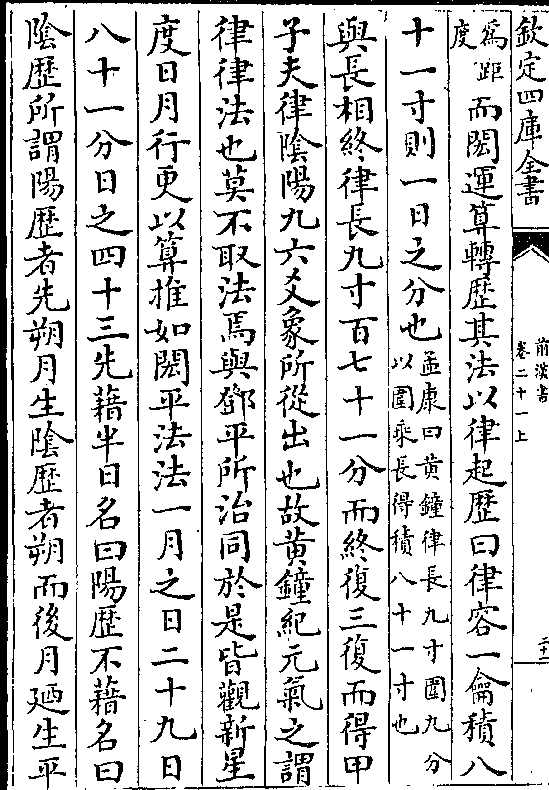 欽定四庫全書
前漢書
卷二十一上
二十二
為距
度
而閎運算轉歷其法以律起歷曰律容一龠積八
十一寸則一日之分也
孟康曰黃鐘律長九寸圍九分
以圍乘長得積八十一寸也
與長相終律長九寸百七十一分而終復三復而得甲
子夫律陰陽九六爻象所從出也故黃鐘紀元氣之謂
律律法也莫不取法焉與鄧平所治同於是皆觀新星
度日月行更以算推如閎平法法一月之日二十九日
八十一分日之四十三先藉半日名曰陽歷不藉名曰
陰歷所謂陽歷者先朔月生陰歷者朔而後月廼生平